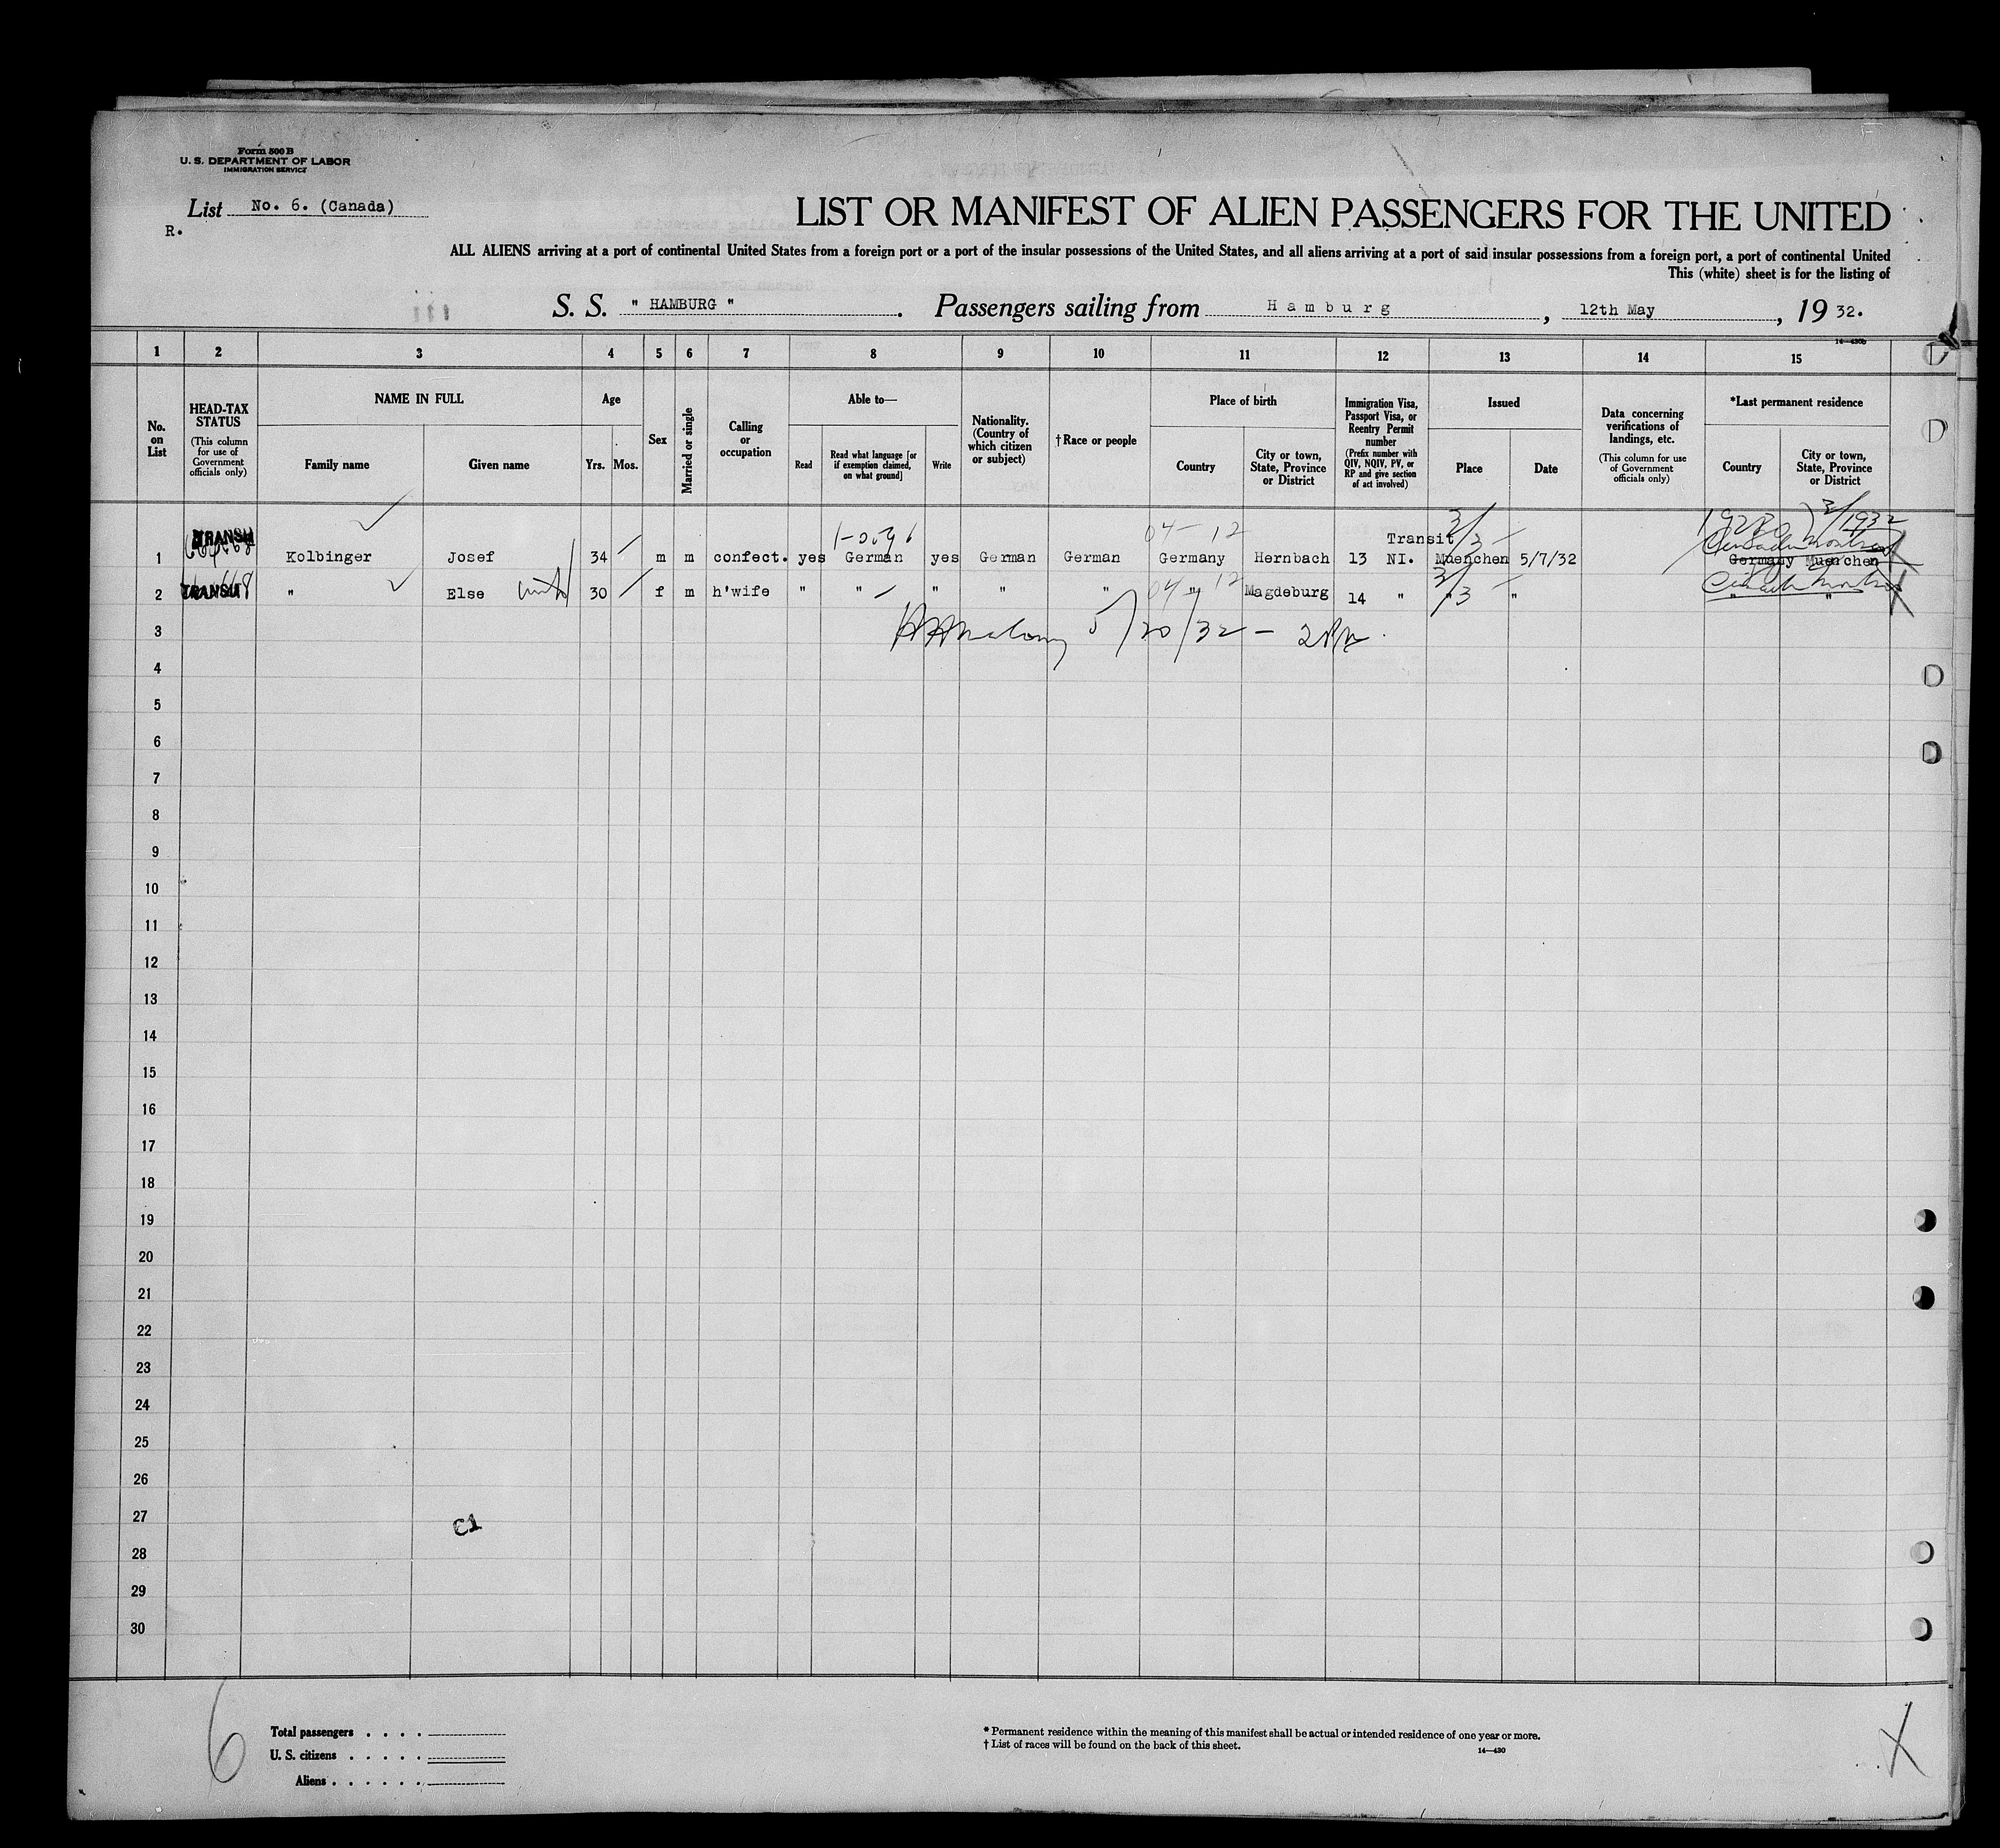 Form 500 B
U. S. DEPARTMENT OF LABOR
IMMIGRATION SERVICE
List No. 6. (Canada)
R.
LIST OR MANIFEST OF ALIEN PASSENGERS FOR THE UNITED
ALL ALIENS arriving at a port of continental United States from a foreign port or a port of the insular possessions of the United States, and all aliens arriving at a port of said insular possessions from a foreign port, a port of continental United
This (white) sheet is for the listing of
S. S. " HAMBURG " . Passengers sailing from Hamburg , 12th May , 19 32.
14—430b
1 2 3 4 5 6 7 8 9 10 11 12 13 14 15
No. on List
HEAD-TAX STATUS
(This column for use of Government officials only)
NAME IN FULL
Family name
Given name
Age
Yrs. Mos.
Sex
Married or single
Calling or occupation
Able to—
Read
Read what language [or if exemption claimed, on what ground]
Write
Nationality. (Country of which citizen or subject)
†Race or people
Place of birth
Country
City or town, State, Province or District
Immigration Visa, Passport Visa, or Reentry Permit number
(Prefix number with QIV, NQIV, PV, or RP and give section of act involved)
Issued
Place
Date
Data concerning verifications of landings, etc.
(This column for use of Government officials only)
*Last permanent residence
Country
City or town, State, Province or District
04 - 12 3/3 - 2/1932
1 TRANSIT Kolbinger Josef 34 m m confect. yes German yes German German Germany Hernbach 13 Transit NI. Muenchen 5/7/32 Germany Muenchen
04 - 12 3/3 -
2 TRANSIT " Else 30 f m h'wife " " " " " " Magdeburg 14 " " " " "
3 5/20/32 -
4
5
6
7
8
9
10
11
12
13
14
15
16
17
18
19
20
21
22
23
24
25
26
27 C1
28
29
30
6
Total passengers . . . .
U. S. citizens . . . . .
Aliens . . . . . .
* Permanent residence within the meaning of this manifest shall be actual or intended residence of one year or more.
† List of races will be found on the back of this sheet.
14—430
X